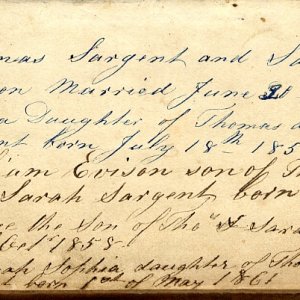 mas Sargent and Sa
on Married June 21
a Daughter of Thomas a
nt born July 18th 185
iam Evison son of T
Sarah Sargent born
ge the Son of Thos & Sara
Octr 1858
rah Sophia daughter of Tho
nt born 1st of May 1861